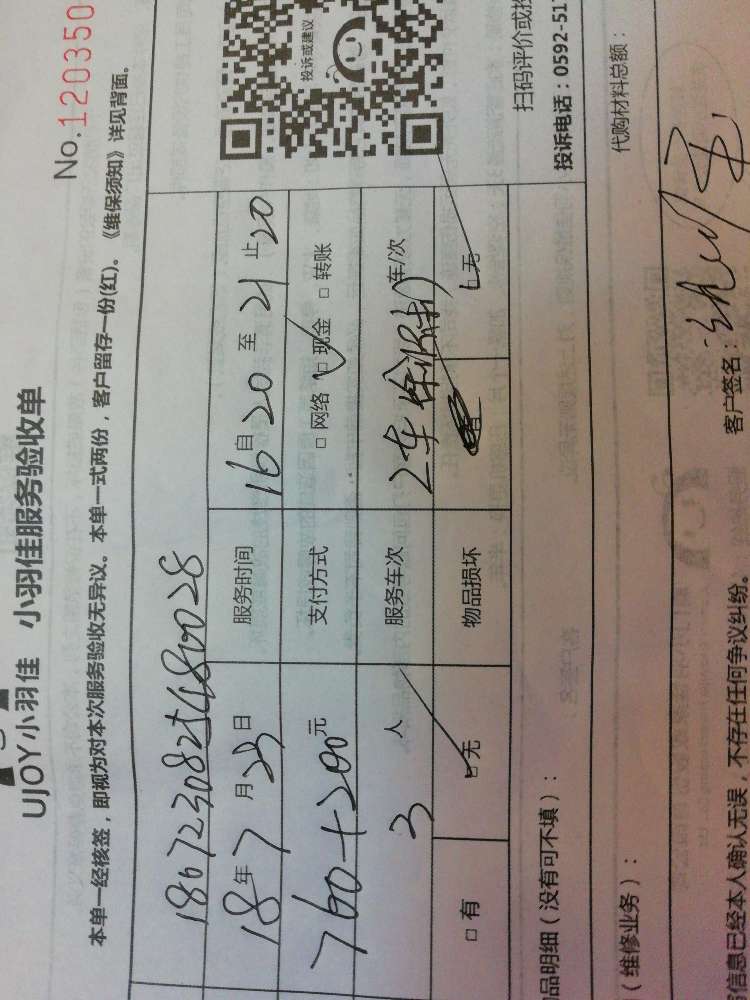 UJOY小羽佳 小羽佳服务验收单
No.120350
本单一经核签，即视为对本次服务验收无异议。本单一式两份，客户留存一份(红)。《维保须知》详见背面。
18年7月23日
服务时间
16自20至21止20
760+200元
支付方式
□网络 □现金 □转账
3人
服务车次
2车 车/次
□有
□无
物品损坏
□无
投诉或建议
扫码评价或投
投诉电话：0592-517
品明细（没有可不填）：
代购材料总额：
（维修业务）：
信息已经本人确认无误，不存在任何争议纠纷。
客户签名：